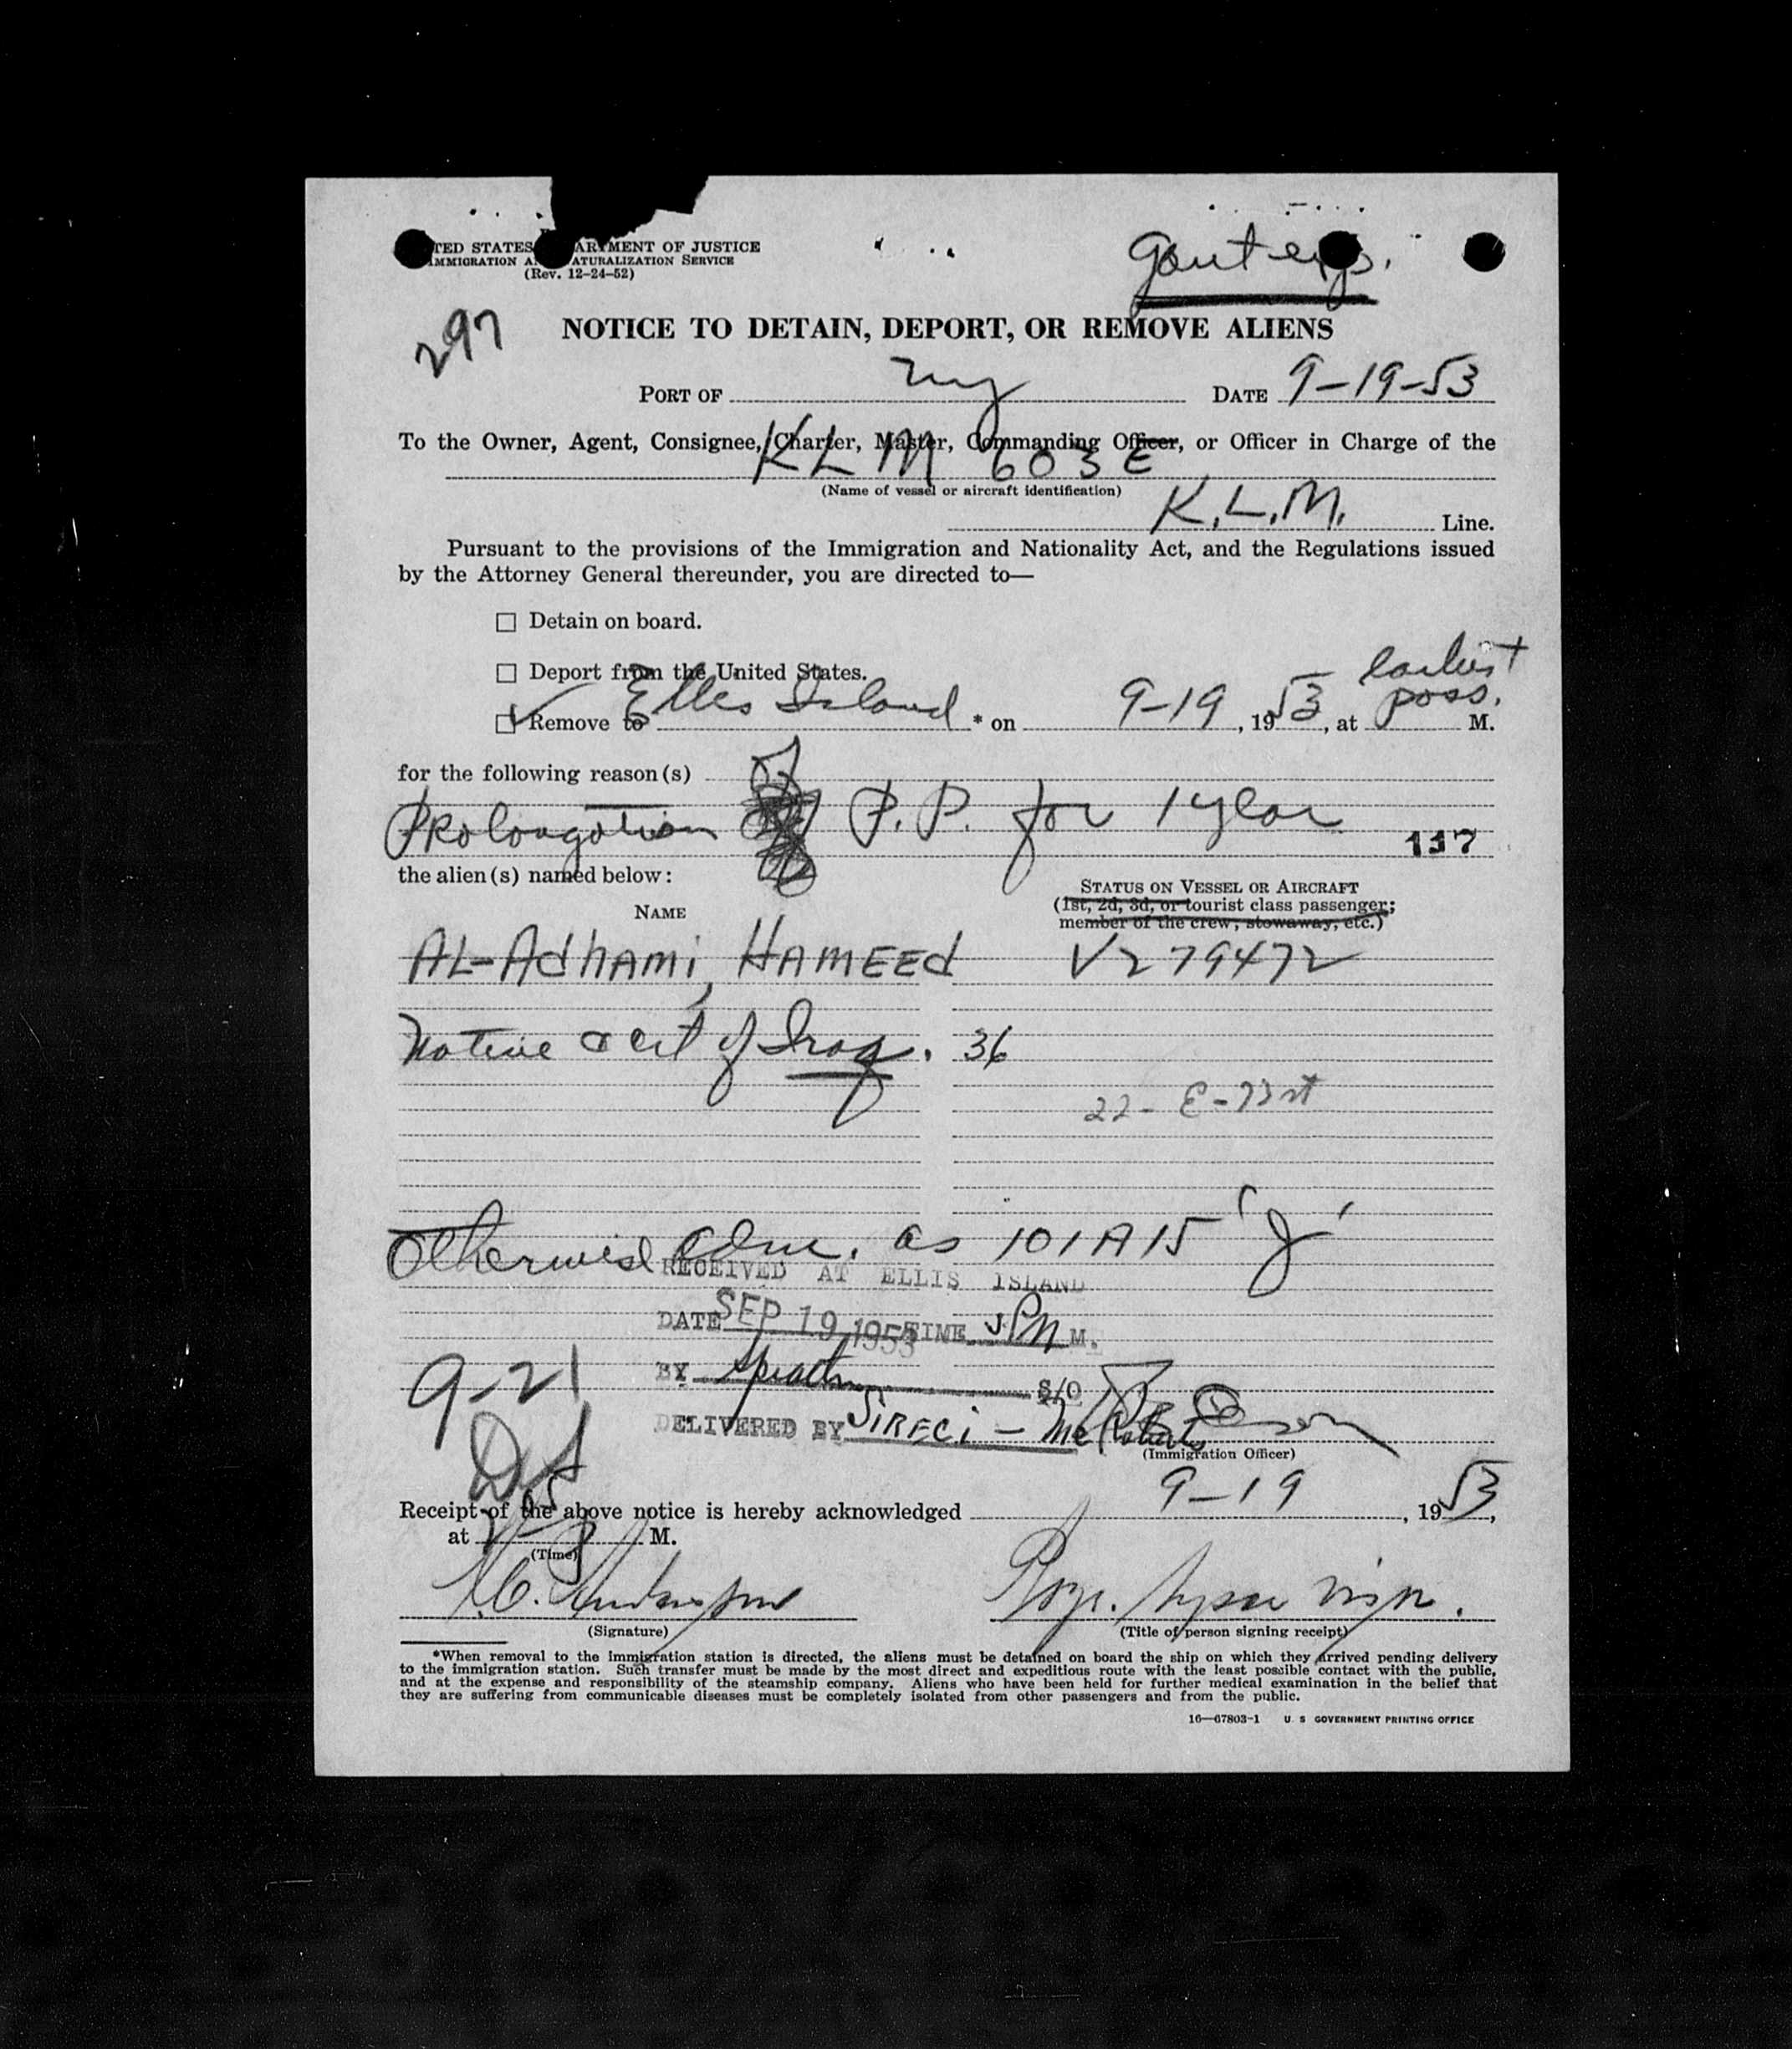 TED STATES ARTMENT OF JUSTICE
IMMIGRATION A NATURALIZATION SERVICE
(Rev. 12-24-52)
297
NOTICE TO DETAIN, DEPORT, OR REMOVE ALIENS
PORT OF ny DATE 9-19-53
To the Owner, Agent, Consignee, Charter, Master, Commanding Officer, or Officer in Charge of the
KLM 603 E
(Name of vessel or aircraft identification)
K.L.M. Line.
Pursuant to the provisions of the Immigration and Nationality Act, and the Regulations issued
by the Attorney General thereunder, you are directed to—
☐ Detain on board.
☐ Deport from the United States.
earliest
☑ Remove to Ellis Island * on 9-19, 1953, at poss. M.
for the following reason(s) of
Prolongation P.P. for 1 year
137
the alien(s) named below:
NAME
STATUS ON VESSEL OR AIRCRAFT
(1st, 2d, 3d, or tourist class passenger;
member of the crew, stowaway, etc.)
AL-AdhAmi, HAMEEd V279472
Native & cit of Iraq. 36
22- E-73rd
Otherwise adm. as 101A15 'J'
RECEIVED AT ELLIS ISLAND
DATE SEP 19 1953 TIME PM M.
BY S/O
9-21
DELIVERED BY SIRECI - McRoberts
(Immigration Officer)
Receipt of the above notice is hereby acknowledged 9-19, 1953,
at M.
(Time)
(Signature)
(Title of person signing receipt)
*When removal to the immigration station is directed, the aliens must be detained on board the ship on which they arrived pending delivery
to the immigration station. Such transfer must be made by the most direct and expeditious route with the least possible contact with the public,
and at the expense and responsibility of the steamship company. Aliens who have been held for further medical examination in the belief that
they are suffering from communicable diseases must be completely isolated from other passengers and from the public.
16—67803-1 U. S. GOVERNMENT PRINTING OFFICE